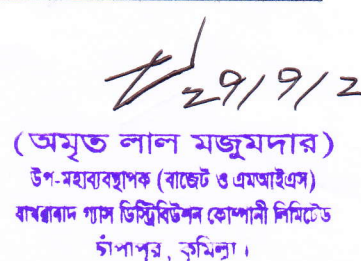 29/9/2
(অমৃত লাল মজুমদার)
উপ-মহাব্যবস্থাপক (বাজেট ও এমআইএস)
বাখরাবাদ গ্যাস ডিস্ট্রিবিউশন কোম্পানী লিমিটেড
চাঁপাপুর, কুমিল্লা।